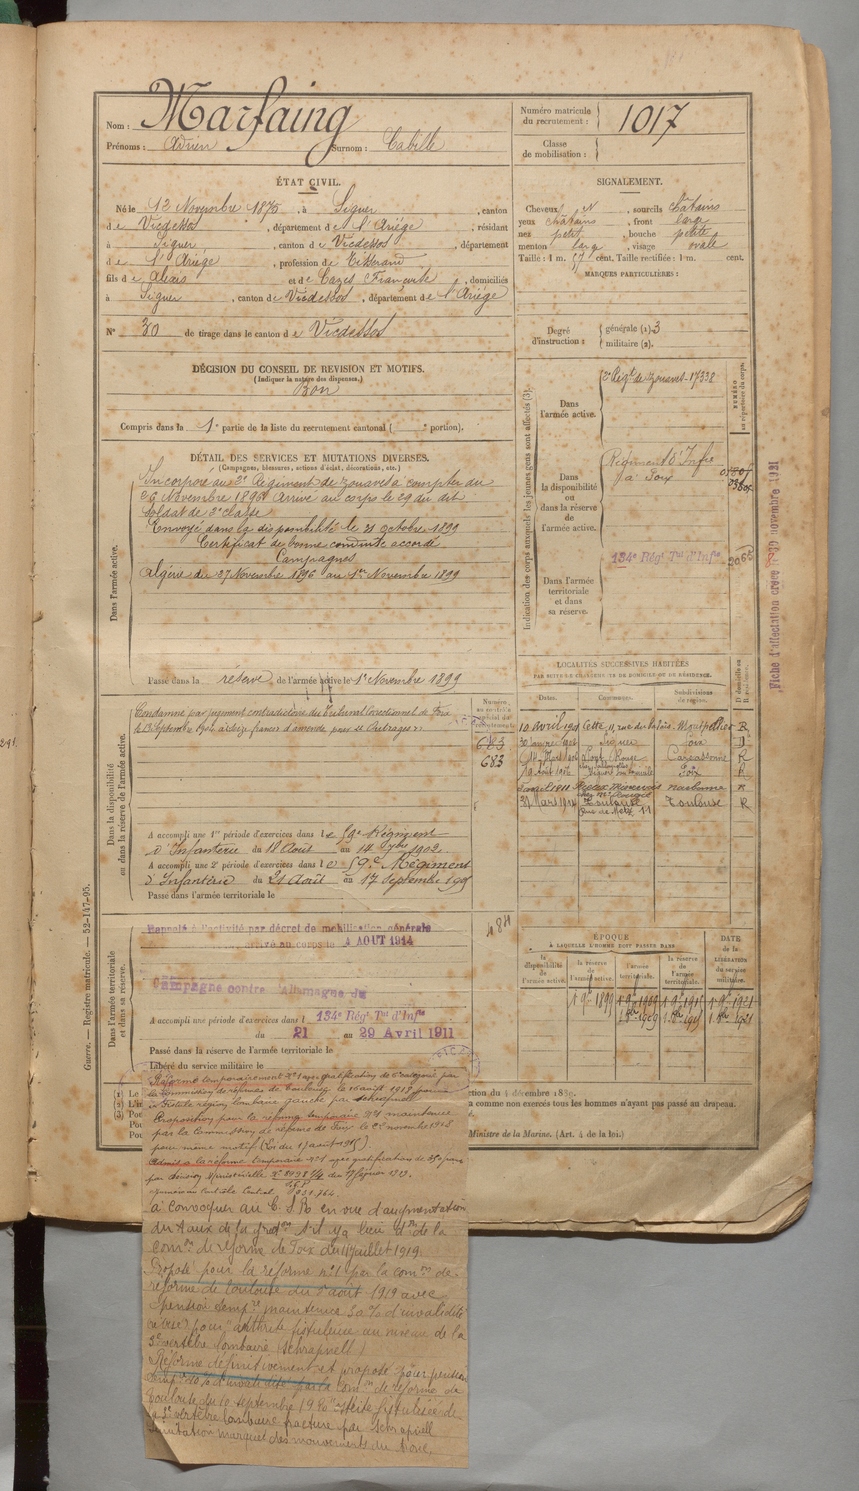 Nom : Marfaing
Prénoms : Adrien Surnom : Cabille
Numéro matricule du recrutement : 1017
Classe de mobilisation :
ÉTAT CIVIL.
Né le 12 Novembre 1875, à Siguer, canton
de Vicdessos, département de l'Ariége, résidant
à Siguer, canton de Vicdessos, département
de l'Ariége, profession de Tisserand
fils de Alexis et de Cazes Françoise, domiciliés
à Siguer, canton de Vicdessos, département de l'Ariége
N° 30 de tirage dans le canton de Vicdessos
SIGNALEMENT.
Cheveux N, sourcils châtains
yeux châtains, front large
nez petit, bouche petite
menton large, visage ovale
Taille : 1 m. 57 cent. Taille rectifiée : 1 m. cent.
MARQUES PARTICULIÈRES :
Degré d'instruction : générale (1) 3
militaire (2).
DÉCISION DU CONSEIL DE REVISION ET MOTIFS.
(Indiquer la nature des dispenses.)
Bon
Compris dans la 1e partie de la liste du recrutement cantonal ( e portion).
DÉTAIL DES SERVICES ET MUTATIONS DIVERSES.
(Campagnes, blessures, actions d'éclat, décorations, etc.)
Dans l'armée active.
Incorporé au 2e Régiment de zouaves à compter du
Novembre 1896 Arrivé au corps le 29 du dit
Soldat de 2e classe
Envoyé dans la disponibilité le 21 octobre 1899
Certificat de bonne conduite accordé
Campagnes
Algérie du 27 Novembre 1896 au 1er Novembre 1899
Passé dans la réserve de l'armée active le 1er Novembre 1899
Indication des corps auxquels les jeunes gens sont affectés (3).
NUMÉRO au répertoire du corps.
Dans l'armée active.
2e Régt de zouaves 17338
Dans la disponibilité ou dans la réserve de l'armée active.
Régiment d'Infie
à Foix
Dans l'armée territoriale et dans sa réserve.
134e Régt Tal d'Infie
Fiche d'affectation créée le 30 novembre 1921
Dans la disponibilité ou dans la réserve de l'armée active.
Condamné par jugement contradictoire du Tribunal Correctionnel de Foix
683
683
A accompli une 1re période d'exercices dans le 59e Régiment
d'Infanterie du 18 Août au 14 7bre 1902.
A accompli une 2e période d'exercices dans le 59e Régiment
d'Infanterie du 21 Août au 17 Septembre 1905
Passé dans l'armée territoriale le
LOCALITÉS SUCCESSIVES HABITÉES
PAR SUITE DE CHANGEMENT DE DOMICILE OU DE RÉSIDENCE.
Dates. Communes. Subdivisions de région. D domicile ou R résidence.
10 Avril 1901 Cette, 11, rue du Palais Montpellier R
Siguer Foix D
Pont Rouge Carcassonne R
Foix R
Rieux Minervois Narbonne R
31 Mars 1914 Toulouse Toulouse R
Rue de Metz 11
Dans l'armée territoriale et dans sa réserve.
Rappelé à l'activité par décret de mobilisation générale
arrivé au corps le 4 AOUT 1914
484
Campagne contre l'Allemagne du
A accompli une période d'exercices dans l 134e Régt Tal d'Infie
du 21 au 29 Avril 1911
Passé dans la réserve de l'armée territoriale le
Libéré du service militaire le
ÉPOQUE
À LAQUELLE L'HOMME DOIT PASSER DANS
DATE de la LIBÉRATION du service militaire.
la disponibilité de l'armée active. la réserve de l'armée active. l'armée territoriale. la réserve de l'armée territoriale.
1 9bre 1899 1 9bre 1909 1 9bre 1915 1 9bre 1921
Guerre. — Registre matricule. — 52-147-95.
(1) Le
(2) L'in
(3) Pou
ction du 4 décembre 1889.
a comme non exercés tous les hommes n'ayant pas passé au drapeau.
Ministre de la Marine. (Art. 4 de la loi.)
Réformé temporairement N°1 avec gratification de catégorie par
la Commission de réforme de Toulouse le 10 août 1918 pour
fistule région lombaire gauche par schrapnell
Proposition pour la réforme temporaire N°1 maintenue
par la Commission de réforme de Foix le 22 novembre 1918
pour même motif
Admis à la réforme temporaire N°1 avec gratification
à convoquer au C. S. R en vue d'augmentation
du taux de la grat on s'il y a lieu don de la
comon de réforme de Foix du 11 juillet 1919.
Proposé pour la réforme n°1 par la comon de
réforme de Toulouse du 5 août 1919 avec
pension tempre maintenue 30% d'invalidité
pour arthrite fistuleuse au niveau de la
3e vertèbre lombaire (schrapnell)
Réformé définitivement et proposé pour pension
d'invalidité par la comon de réforme de
Toulouse du 10 septembre 1920 ostéite fistulisée de
la 3e vertèbre lombaire fracture par schrapnell
limitation marquée des mouvements du tronc,